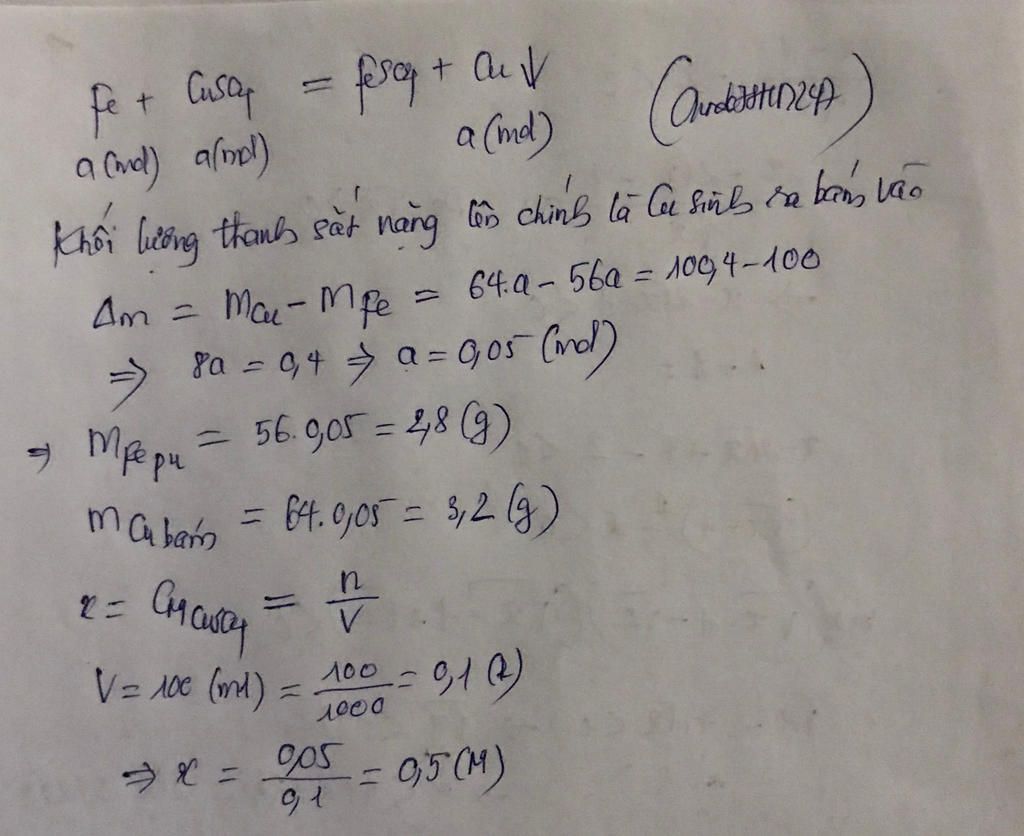 Fe + CuSO4 = FeSO4 + Cu ↓
a (mol) a (mol) a (mol)
Khối lượng thanh sắt nặng lên chính là Cu sinh ra bám vào
Δm = mCu - mFe = 64.a - 56a = 100,4 - 100
⇒ 8a = 0,4 ⇒ a = 0,05 (mol)
⇒ mFe pư = 56. 0,05 = 2,8 (g)
mCu bám = 64. 0,05 = 3,2 (g)
x = CM CuSO4 = n/V
V = 100 (ml) = 100/1000 = 0,1 (l)
⇒ x = 0,05/0,1 = 0,5 (M)